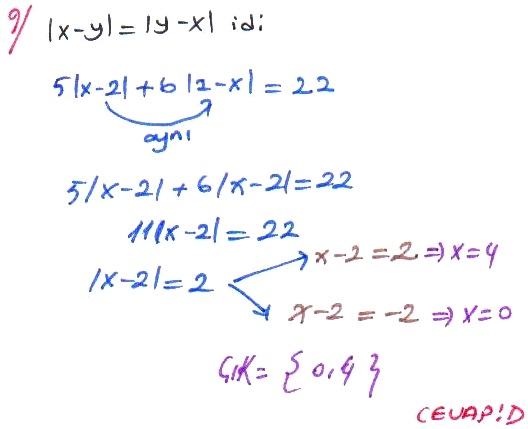 9) |x-y| = |y-x| idi
5|x-2| + 6|2-x| = 22
aynı
5|x-2| + 6|x-2| = 22
11|x-2| = 22
|x-2| = 2
x-2 = 2 ⇒ x=4
x-2 = -2 ⇒ x=0
Ç.K = {0,4}
CEVAP: D